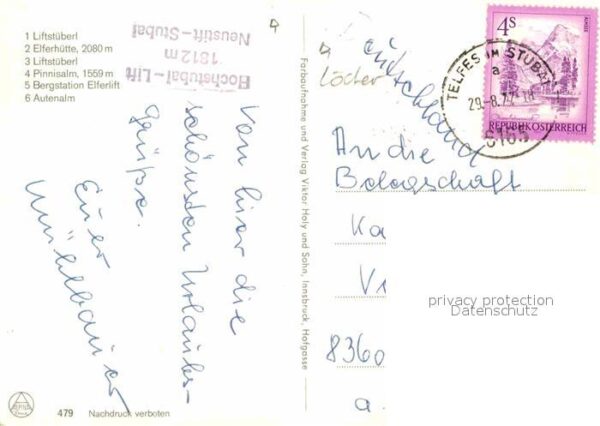 1 Liftstüberl
2 Elferhütte, 2080 m
3 Liftstüberl
4 Pinnisalm, 1559 m
5 Bergstation Elferlift
6 Autenalm
Hochstubai-Lift
1812 m
Neustift-Stubai
Von hier die
schönsten Urlaubs-
grüße.
Euer
Mühlbauer
479 Nachdruck verboten
Farbaufnahme und Verlag Viktor Holy und Sohn, Innsbruck, Hofgasse
Löcher
4S
REPUBLIK ÖSTERREICH
TELFES IM STUBAI
a
29.-8.77-18
6165
An die
Belegschaft
Ka
Vi
8360
a.
privacy protection
Datenschutz